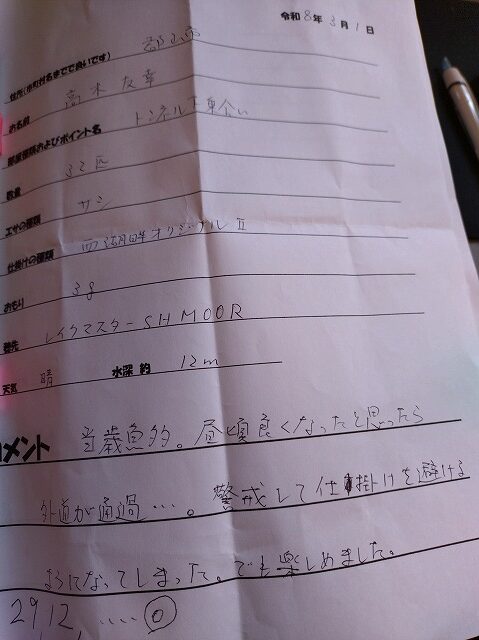 令和8年3月1日
住所(市町村名までで良いです)
お名前 高木友幸
部屋種類およびポイント名 トンネル下 車会い
数量 32匹
エサの種類 サシ
仕掛けの種類 西湖畔オリジナルⅡ
おもり 3g
穂先 レイクマスターSH MOOR
天気 晴 水深 約 12m
コメント 当歳魚多。昼頃良くなったと思ったら
外道が通過…。警戒して仕掛けを避ける
ようになってしまった。でも楽しめました。
2912,